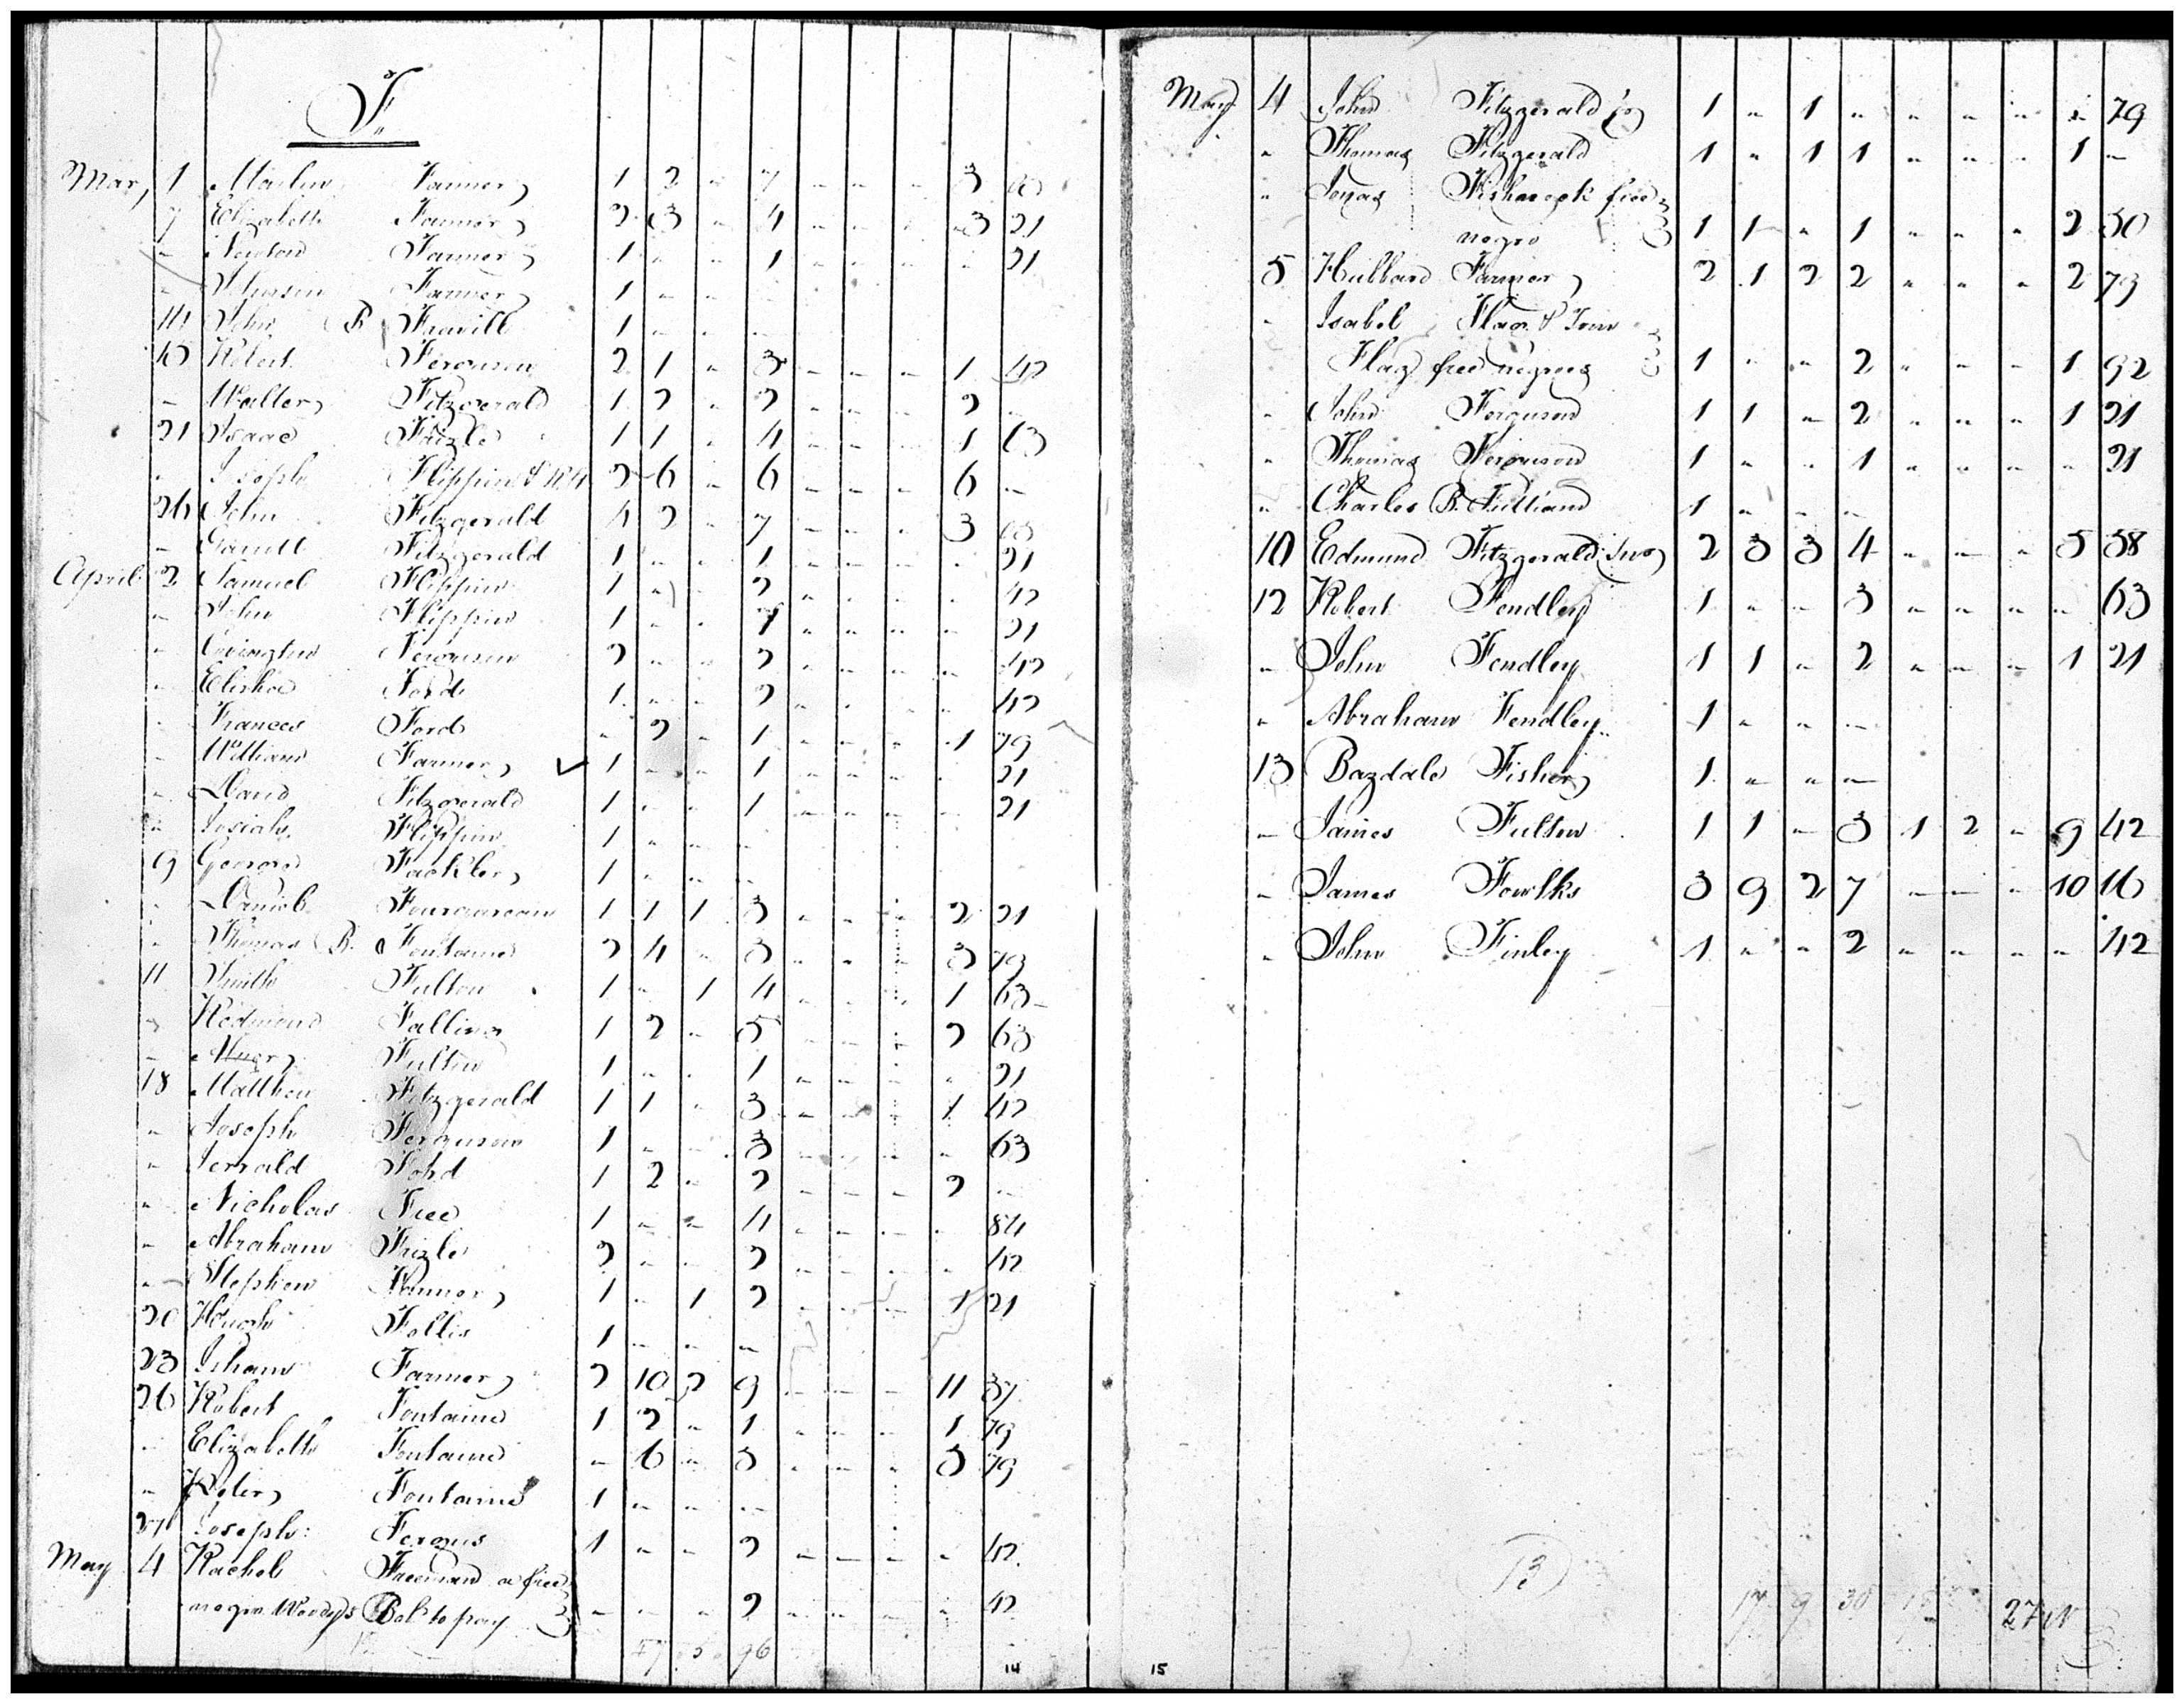 F.
Mar, 1 Farmer 1 2 " 7 " " " 3
7 Elizabeth Farmer 2 3 " 4 " " " 3 21
" Farmer 1 " " 1 " " " " 21
" Johnson Farmer 1 " "
John B 1 " " "
15 Robert Ferguson 2 1 " 3 " " " 1 42
" Walter Fitzgerald 1 2 " 2 " " " 2 "
21 Isaac Frizle 1 1 " 4 " " " 1 63
" Joseph Flippin & 2 6 " 6 " " " 6 "
26 John Fitzgerald 4 2 " 7 " " " 3 63
" Fitzgerald 1 " " 1 " " " " 21
April 2 Samuel Flippin 1 " " 2 " " " " 42
" John Flippin 1 " " 1 " " " " 21
" Covington Ferguson 2 " " 2 " " " " 42
" Elisha Ford 1 " " 2 " " " " 42
" Frances Ford " 2 " 1 " " " 1 79
" William Farmer ✓ 1 " " 1 " " " " 21
" David Fitzgerald 1 " " 1 " " " " 21
" Josiah Flippin 1 " " "
9 George Fackler 1 " " "
" Daniel Fourqurean 1 1 1 3 " " " 2 21
" Thomas B. Fontaine 2 4 " 3 " " " 3 79
11 Smith Fulton 1 " 1 4 " " " 1 63
" Redmond Falling 1 2 " 5 " " " 2 63
" Fulton 1 " " 1 " " " " 21
18 Matthew Fitzgerald 1 1 " 3 " " " 1 42
" Joseph Ferguson 1 " " 3 " " " " 63
" Jerrald Ford 1 2 " 2 " " " 2 "
" Nicholas Free 1 " " 4 " " " " 84
" Abraham Frizle 2 " " 2 " " " " 42
" Stephen Farmer 1 " 1 2 " " " 1 21
20 Follis 1 " " "
23 Isham Farmer 2 10 2 9 " " " 11 37
26 Robert Fontaine 1 2 " 1 " " " 1 79
" Elizabeth Fontaine " 6 " 3 " " " 5 79
" Peter Fontaine 1 " " "
27 Joseph Fergus 1 " " 2 " " " " 42
May 4 Rachel Freeman a free
negro Bob to pay " " " 2 " " " " 42
96
14
May 4 John Fitzgerald 1 " 1 " " " " " 79
" Thomas Fitzgerald 1 " 1 1 " " " 1 "
" Jonas free
negro 1 1 " 1 " " " 2 50
5 Hubbard Farmer 2 1 2 2 " " " 2 79
" Isabel Flag & Tom
Flag free negroes 1 " " 2 " " " 1 92
" John Ferguson 1 1 " 2 " " " 1 21
" Thomas Ferguson 1 " " 1 " " " " 21
" Charles B. 1 " " "
10 Edmund Fitzgerald 2 3 3 4 " " " 5 58
12 Robert Fendley 1 " " 3 " " " " 63
" John Fendley 1 1 " 2 " " " 1 21
" Abraham Fendley 1 " " "
13 Bazdale Fisher 1 " " "
" James Fulton 1 1 " 3 1 2 " 9 42
" James Fowlks 3 9 2 7 " " " 10 16
" John Finley 1 " " 2 " " " " 42
13
17 9 30
15